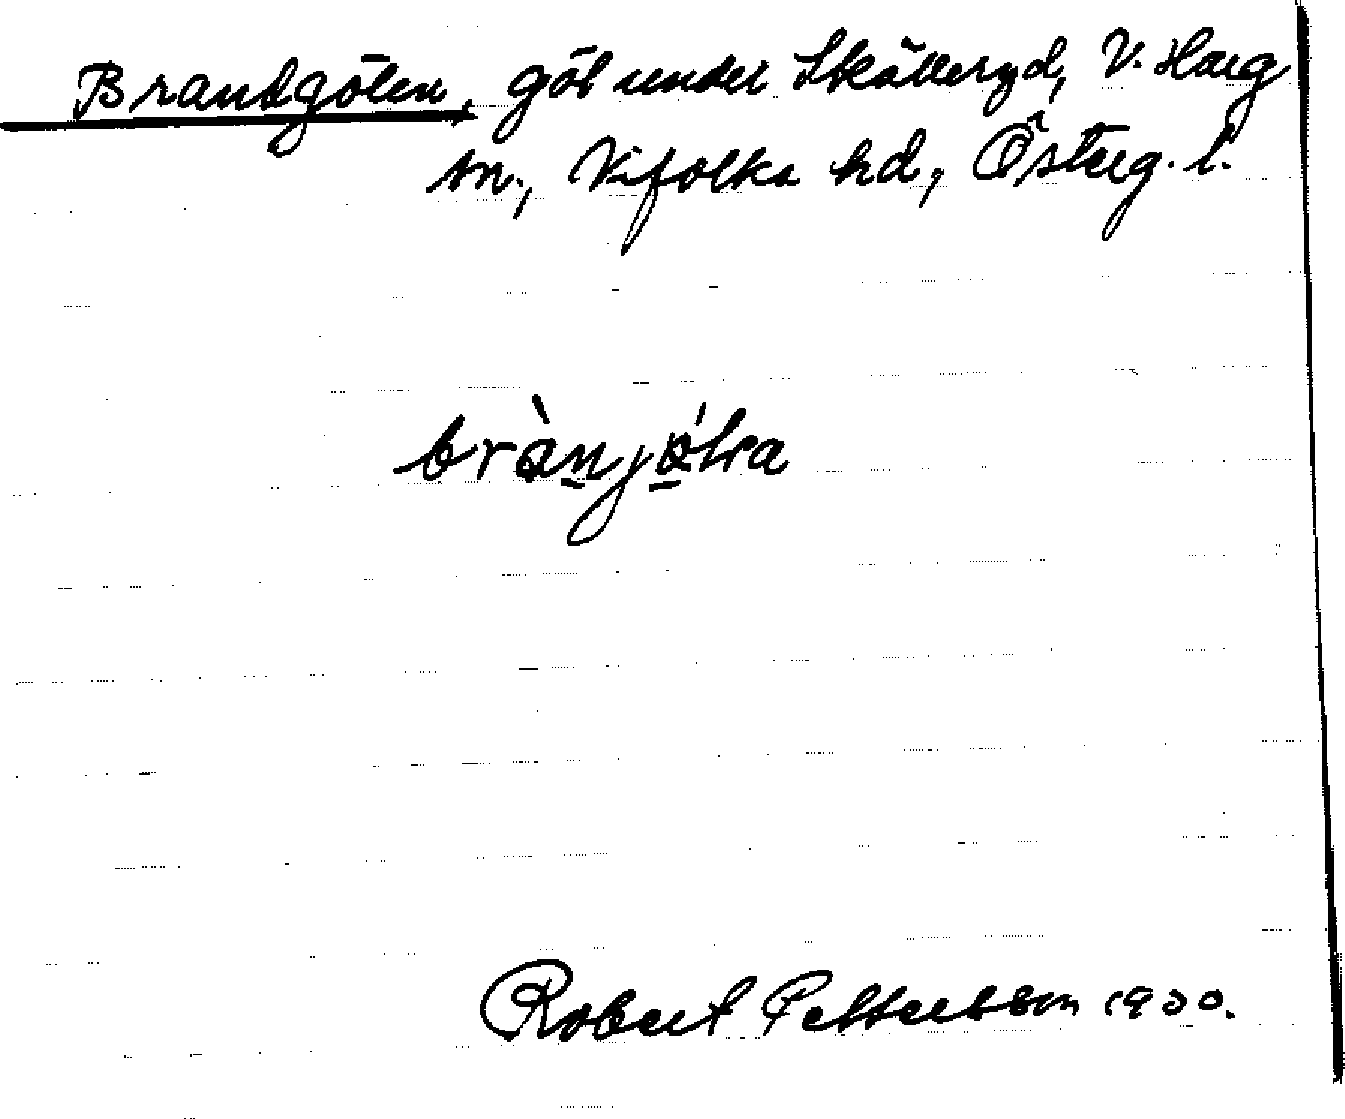 Brandgölen, göl under Skälleryd, V. Harg
sn., Vifolka hd, Österg. l.
brànjö́lra
Robert Pettersson 1930.